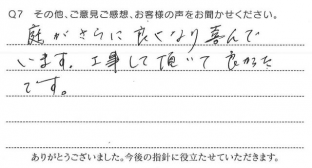 Q7 その他、ご意見ご感想、お客様の声をお聞かせください。
庭がさらに良くなり喜んで
います。工事して頂いて良かった
です。
ありがとうございました。今後の指針に役立たせていただきます。